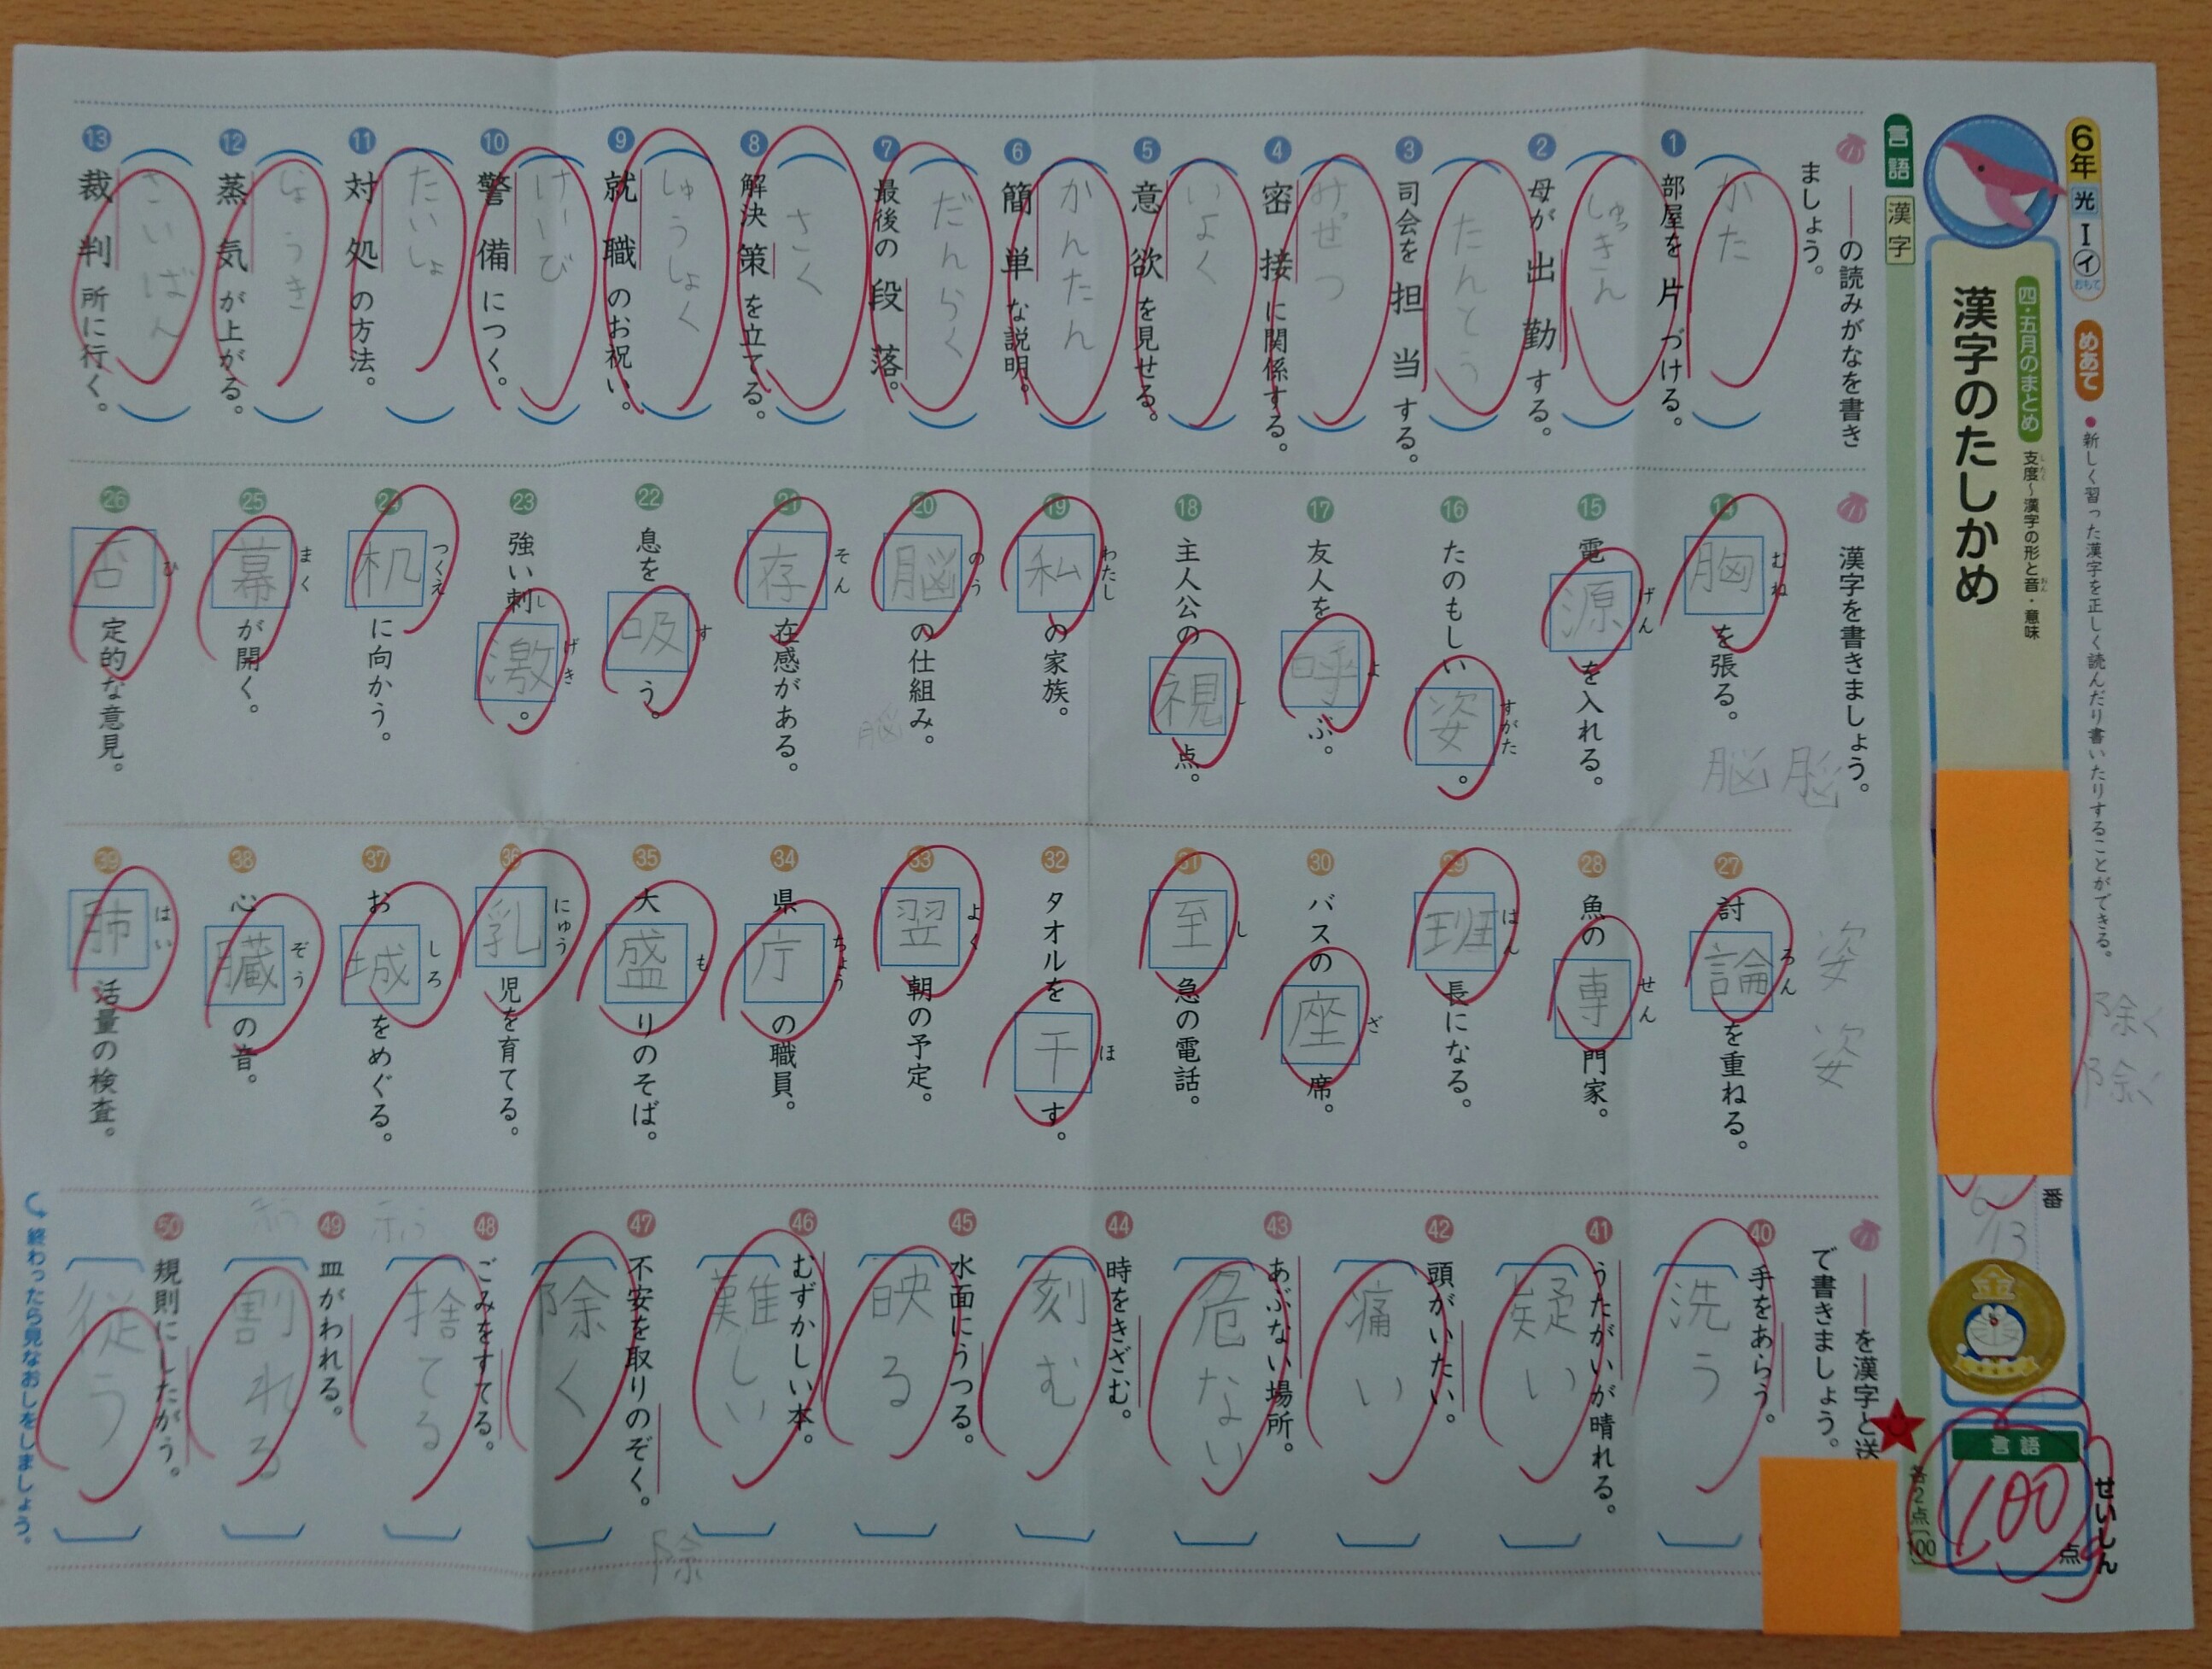 6年 光 Ⅰ イ おもて
めあて ●新しく習った漢字を正しく読んだり書いたりすることができる。
四・五月のまとめ 支度～漢字の形と音・意味
漢字のたしかめ
番
6/13
金
言語
100点
せいしん
言語 漢字
各2点(100)
――の読みがなを書きましょう。
1 部屋を片づける。 かた
2 母が出勤する。 しゅっきん
3 司会を担当する。 たんとう
4 密接に関係する。 みせつ
5 意欲を見せる。 いよく
6 簡単な説明。 かんたん
7 最後の段落。 だんらく
8 解決策を立てる。 さく
9 就職のお祝い。 しゅうしょく
10 警備につく。 けいび
11 対処の方法。 たいしょ
12 蒸気が上がる。 じょうき
13 裁判所に行く。 さいばん
漢字を書きましょう。
14 胸を張る。 むね
15 電源を入れる。 げん
16 たのもしい姿。 すがた
17 友人を呼ぶ。 よ
18 主人公の視点。 し
19 私の家族。 わたし
20 脳の仕組み。 のう
21 存在感がある。 そん
22 息を吸う。 す
23 強い刺激。 し げき
24 机に向かう。 つくえ
25 幕が開く。 まく
26 否定的な意見。 ひ
脳 脳
脳
27 討論を重ねる。 ろん
28 魚の専門家。 せん
29 班長になる。 はん
30 バスの座席。 ざ
31 至急の電話。 し
32 タオルを干す。 ほ
33 翌朝の予定。 よく
34 県庁の職員。 ちょう
35 大盛りのそば。 も
36 乳児を育てる。 にゅう
37 お城をめぐる。 しろ
38 心臓の音。 ぞう
39 肺活量の検査。 はい
姿 姿
除く 除く
――を漢字と送
で書きましょう。
40 手をあらう。 洗う
41 うたがいが晴れる。 疑い
42 頭がいたい。 痛い
43 あぶない場所。 危ない
44 時をきざむ。 刻む
45 水面にうつる。 映る
46 むずかしい本。 難しい
47 不安を取りのぞく。 除く
48 ごみをすてる。 捨てる
49 皿がわれる。 割れる
50 規則にしたがう。 従う
除
終わったら見なおしをしましょう。